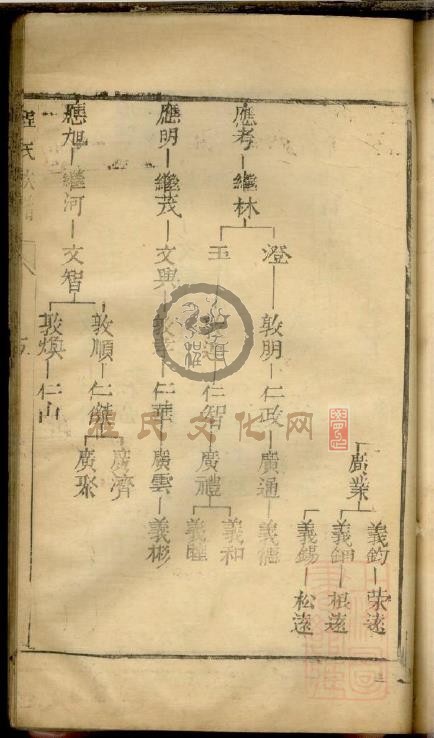 廣業
義鈞 榮遠
義鈿 根遠
義錫 松遠
應考 繼林
澄 敦朋 仁政 廣通 義德
玉 仁智 廣禮
義和
義睦
應明 繼茂 文興 仁華 廣雲 義彬
應旭 繼河 文智
敦順 仁傑
廣濟
廣聚
敦煥 仁山
程氏
程氏文化网